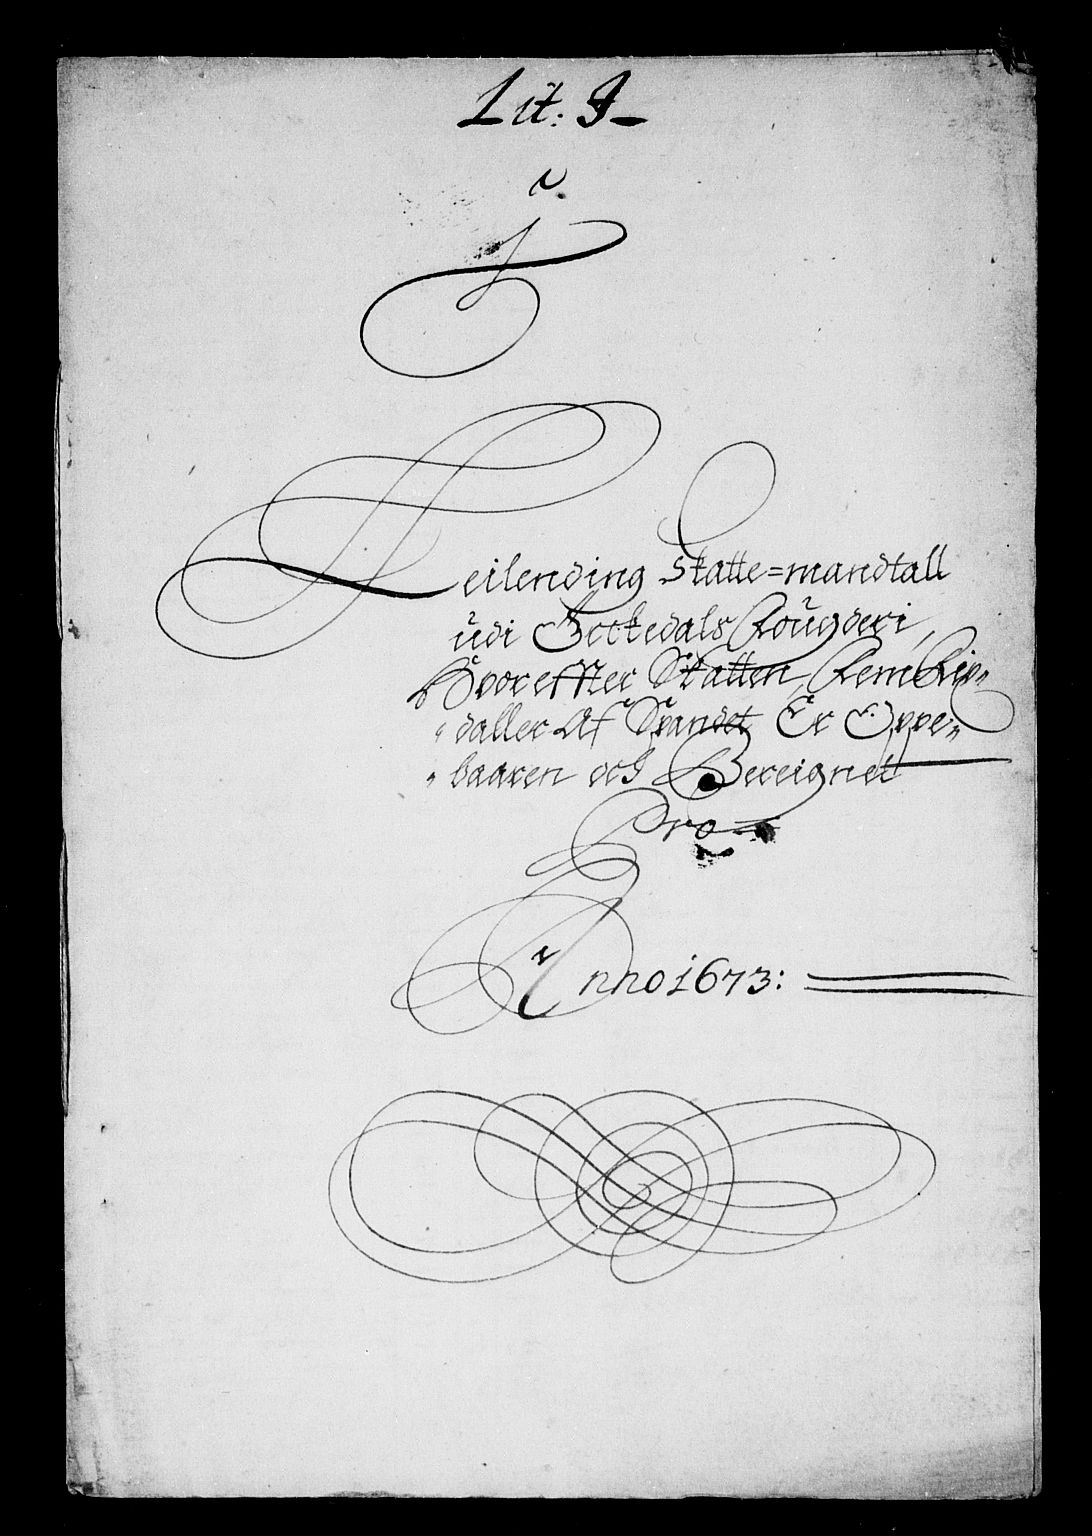 Lit: J
Leilending Skatte=mandtall
udi Orckedals Fougderi,
Hvoreffter Skatten, Fem Rix„
„daller Af Spandet Er Oppe„
„baaren och Bereignet
Pro
Anno 1673: